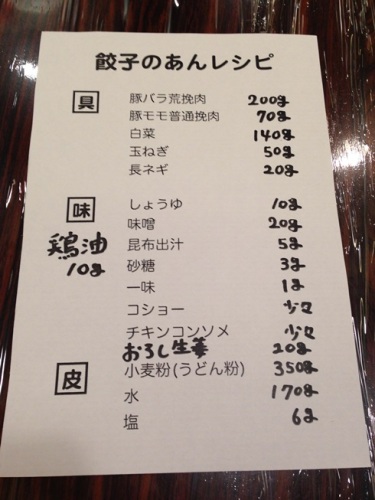 餃子のあんレシピ
具
豚バラ荒挽肉 200g
豚モモ普通挽肉 70g
白菜 140g
玉ねぎ 50g
長ネギ 20g
味 しょうゆ 10g
味噌 20g
鶏油 昆布出汁 5g
10g 砂糖 3g
一味 1g
コショー 少々
チキンコンソメ 少々
おろし生姜 20g
皮 小麦粉(うどん粉) 350g
水 170g
塩 6g